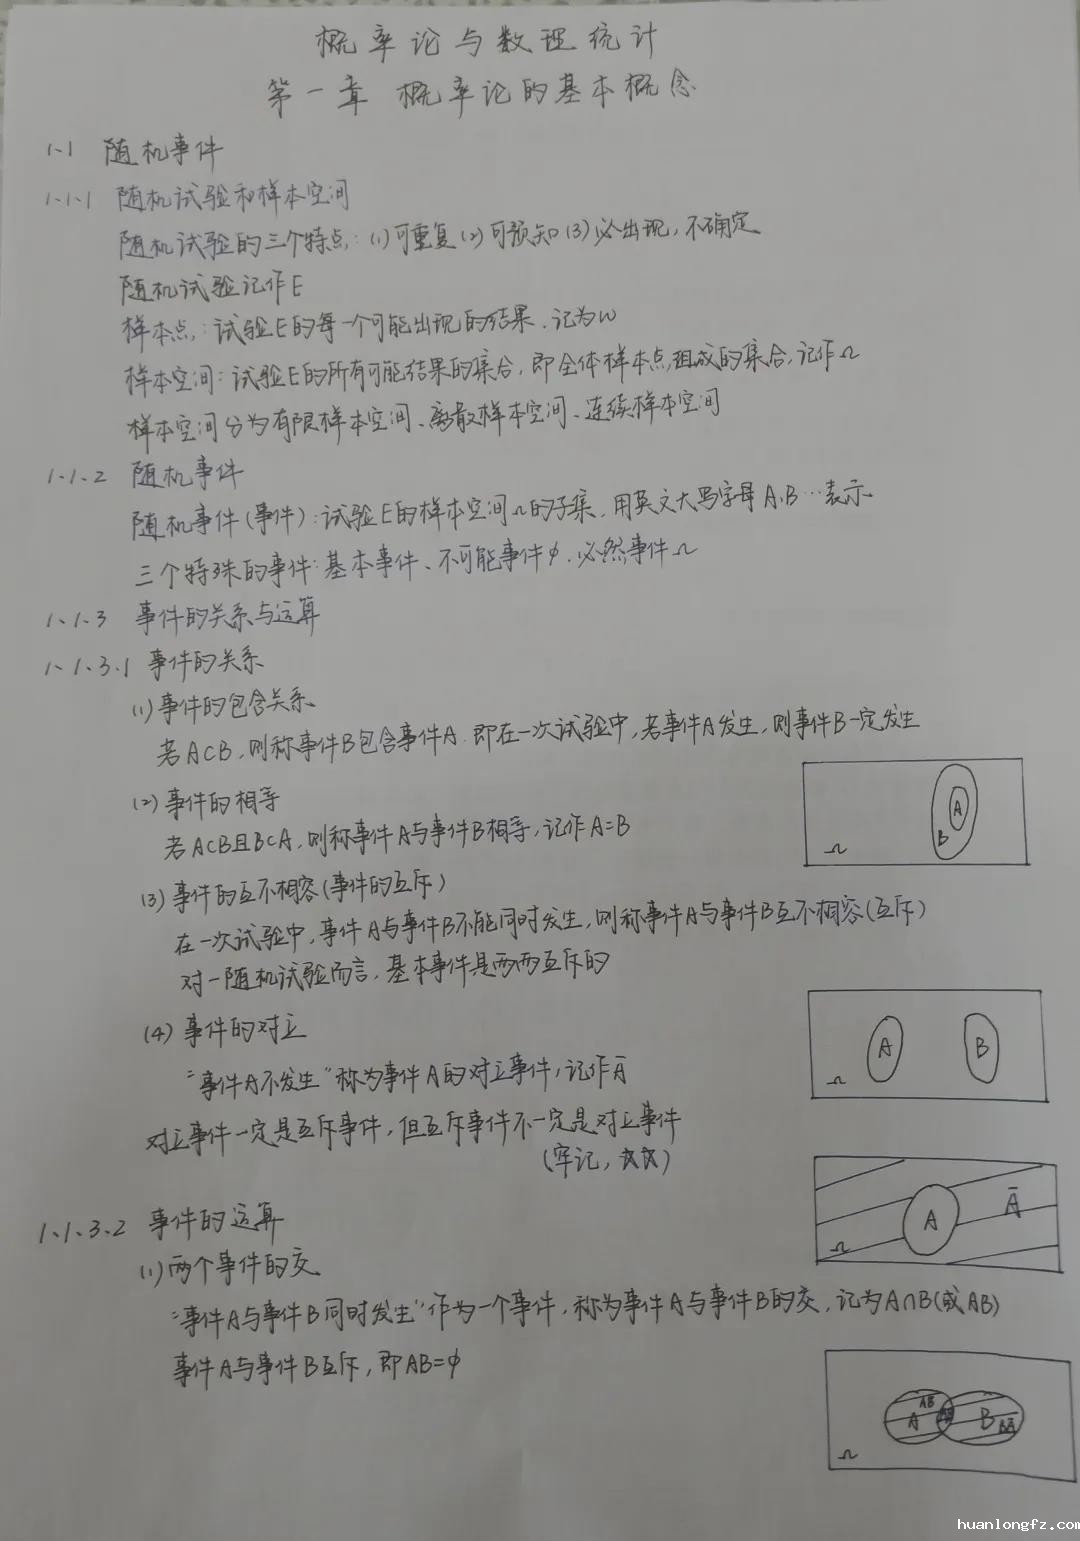 概率论与数理统计
第一章 概率论的基本概念
1.1 随机事件
1.1.1 随机试验和样本空间
随机试验的三个特点:(1)可重复(2)可预知(3)必出现,不确定
随机试验记作E
样本点:试验E的每一个可能出现的结果.记为ω
样本空间:试验E的所有可能结果的集合,即全体样本点组成的集合,记作Ω
样本空间分为有限样本空间、离散样本空间、连续样本空间
1.1.2 随机事件
随机事件(事件):试验E的样本空间Ω的子集.用英文大写字母A、B…表示
三个特殊的事件:基本事件、不可能事件φ.必然事件Ω
1.1.3 事件的关系与运算
1.1.3.1 事件的关系
(1)事件的包含关系
若A⊂B,则称事件B包含事件A.即在一次试验中,若事件A发生,则事件B一定发生
A
B
Ω
(2)事件的相等
若A⊂B且B⊂A,则称事件A与事件B相等,记作A=B
(3)事件的互不相容(事件的互斥)
在一次试验中,事件A与事件B不能同时发生,则称事件A与事件B互不相容(互斥)
对一随机试验而言,基本事件是两两互斥的
A B
Ω
(4)事件的对立
“事件A不发生”称为事件A的对立事件,记作Ā
对立事件一定是互斥事件,但互斥事件不一定是对立事件
(牢记,☆☆)
A Ā
Ω
1.1.3.2 事件的运算
(1)两个事件的交
“事件A与事件B同时发生”作为一个事件,称为事件A与事件B的交,记为A∩B(或AB)
事件A与事件B互斥,即AB=φ
A B
BĀ
Ω